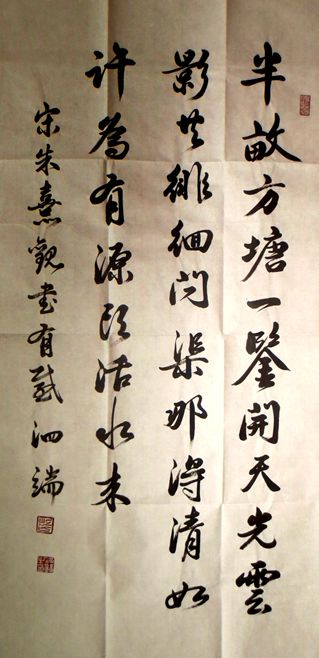 半畝方塘一鑒開天光雲
影共徘徊問渠那得清如
許為有源頭活水来
宋朱熹觀書有感泗端